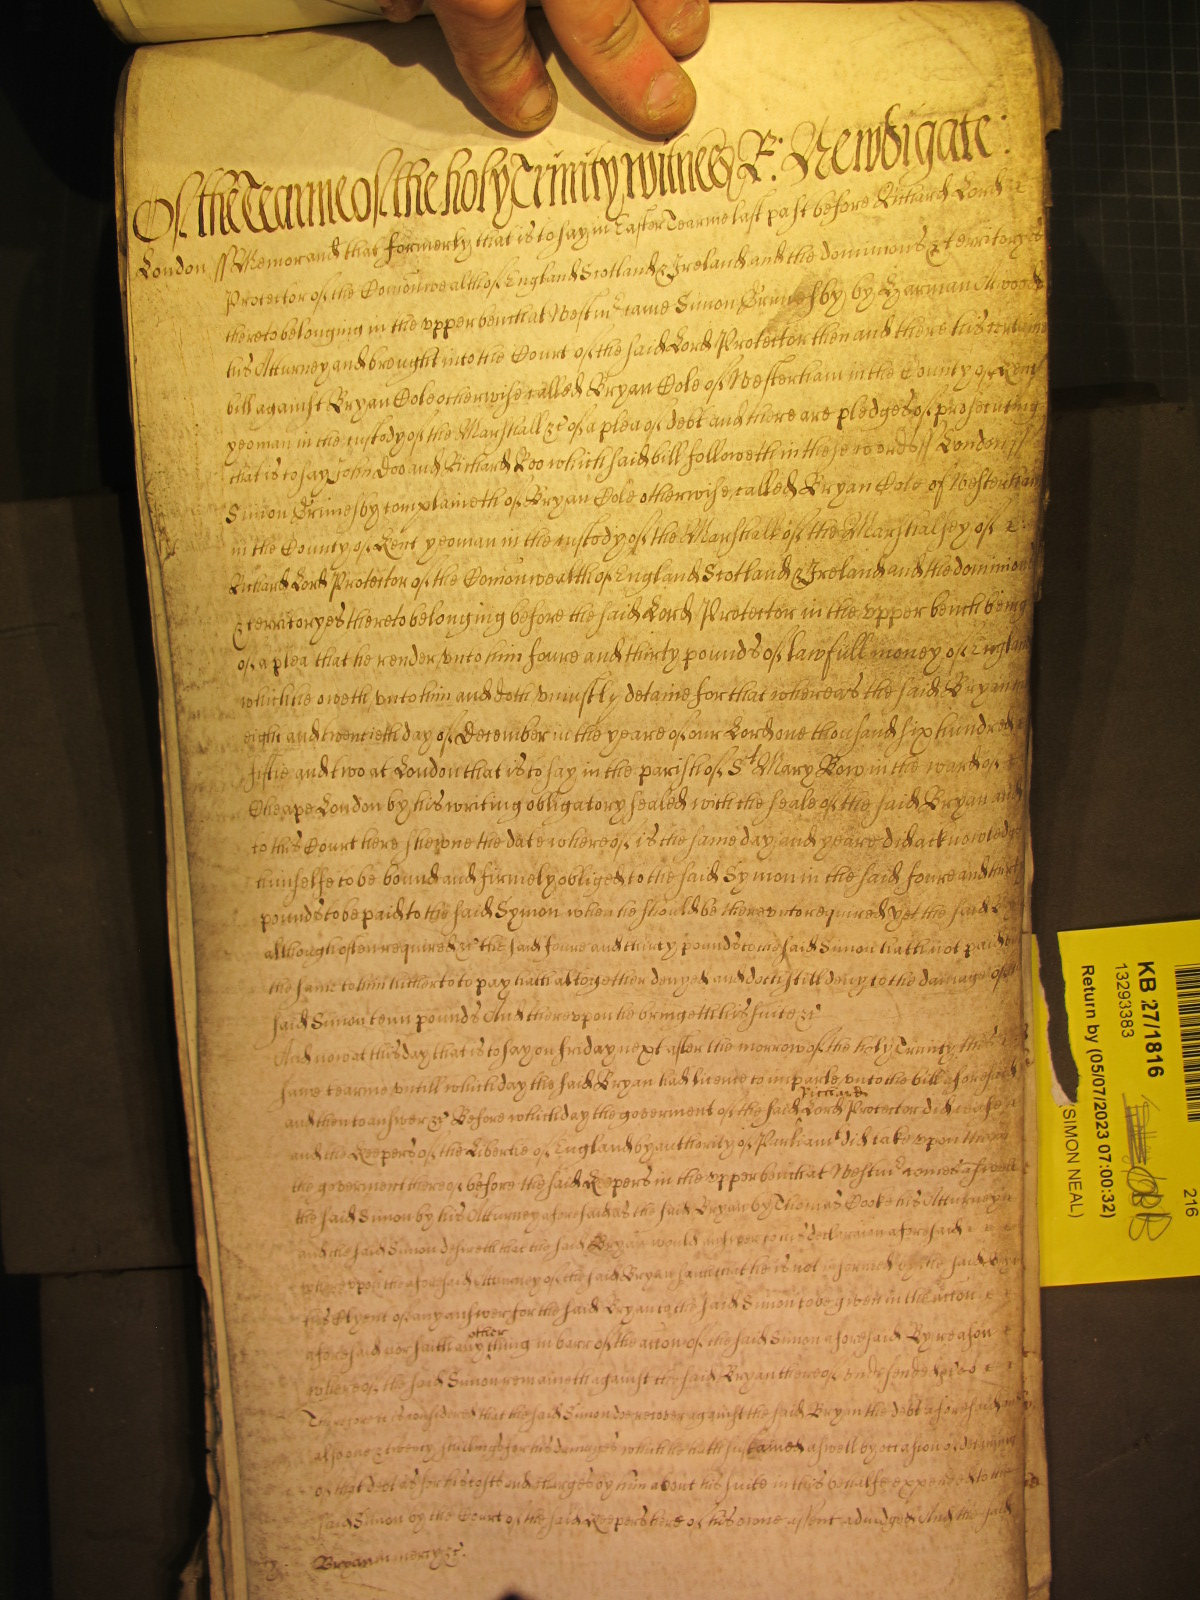 Of the Tearme of the holy Trinity witnes R: Newdigate:
London ss Memorand that formerly that is to say in Easter Tearme last past before Richard Lord
Protector of the Comonwealth of England Scotland & Ireland and the dominions & territoryes
thereto belonging in the upper bench at Westmr came Simon Grimesby by Harman Atwood
his Atturney and brought into the Court of the said Lord Protector then and there his certaine
bill against Bryan Cole otherwise called Bryan Cole of Westerham in the County of Kent
yeoman in the custody of the Marshall &c of a plea of debt and there are pledges of prosecuting
that is to say John Doo and Richard Roo which said bill followeth in these words ss London ss
Simon Grimesby complaineth of Bryan Cole otherwise called Bryan Cole of Westerham
in the County of Kent yeoman in the custody of the Marshall of the Marshalsey of
Richard Lord Protector of the Comonwealth of England Scotland & Ireland and the dominions
& territoryes thereto belonging before the said Lord Protector in the upper bench being
of a plea that he render unto him foure and thirty pounds of lawfull money of England
which he oweth unto him and doth uniustly detaine for that whereas the said Bryan the
eight and twentieth day of December in the yeare of our Lord one thousand six hundred
fiftie and two at London that is to say in the parish of St Mary Bow in the ward of
Cheape London by his writing obligatory sealed with the seale of the said Bryan and
to this Court here shewne the date whereof is the same day and yeare did acknowledge
himselfe to be bound and firmely obliged to the said Symon in the said foure and thirty
pounds to be paid to the said Symon when he should be thereunto required yet the said Bryan
although often required &c the said foure and thirty pounds to the said Simon hath not paid but
the same to him hitherto to pay hath altogether denyed and doth still deny to the damage of the
said Simon tenn pounds And thereupon he bringeth his suite &c
And now at this day that is to say on friday next after the morrow of the holy Trinity this
same tearme untill which day the said Bryan had licence to imparle unto the bill aforesaid
and then to answer &c Before which day the goverment of the said Richard Lord Protector did cease
and the Keepers of the Libertie of England by authority of Parliamt did take upon them
the goverment thereof before the said Keepers in the upper bench at Westmr comes aswell
the said Simon by his Atturney aforesaid as the said Bryan by Thomas Cooke his Atturney
and the said Simon desireth that the said Bryan would answer to his declaration aforesaid
whereupon the aforesaid Atturney of the said Bryan saith that he is not informed by the said Bryan
his Clyent of any answer for the said Bryan to the said Simon to be given in the action
aforesaid nor saith any other thing in barr of the action of the said Simon aforesaid By reason
whereof the said Simon remaineth against the said Bryan thereof undefended &c
Therefore it is considered that the said Simon doe recover against the said Bryan the debt aforesaid and
alsoe one & twenty shillings for his damages which he hath sustained aswell by occasion of detaining
of that debt as for his costs and charges by him about his suite in this behalfe expended to the
said Simon by the Court of the said Keepers here of his owne assent adiudged And the said
Bryan in mercy &c.
KB 27/1816
13293383
Return by (05/07/2023 07:00:32)
(SIMON NEAL)
216